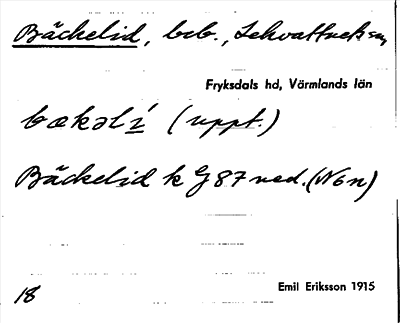 Bäckelid, beb., Lekvattnets sn,
Fryksdals hd, Värmlands län
bækəlí (uppt.)
Bäckelid k G 87 ned. (N6n)
18 Emil Eriksson 1915